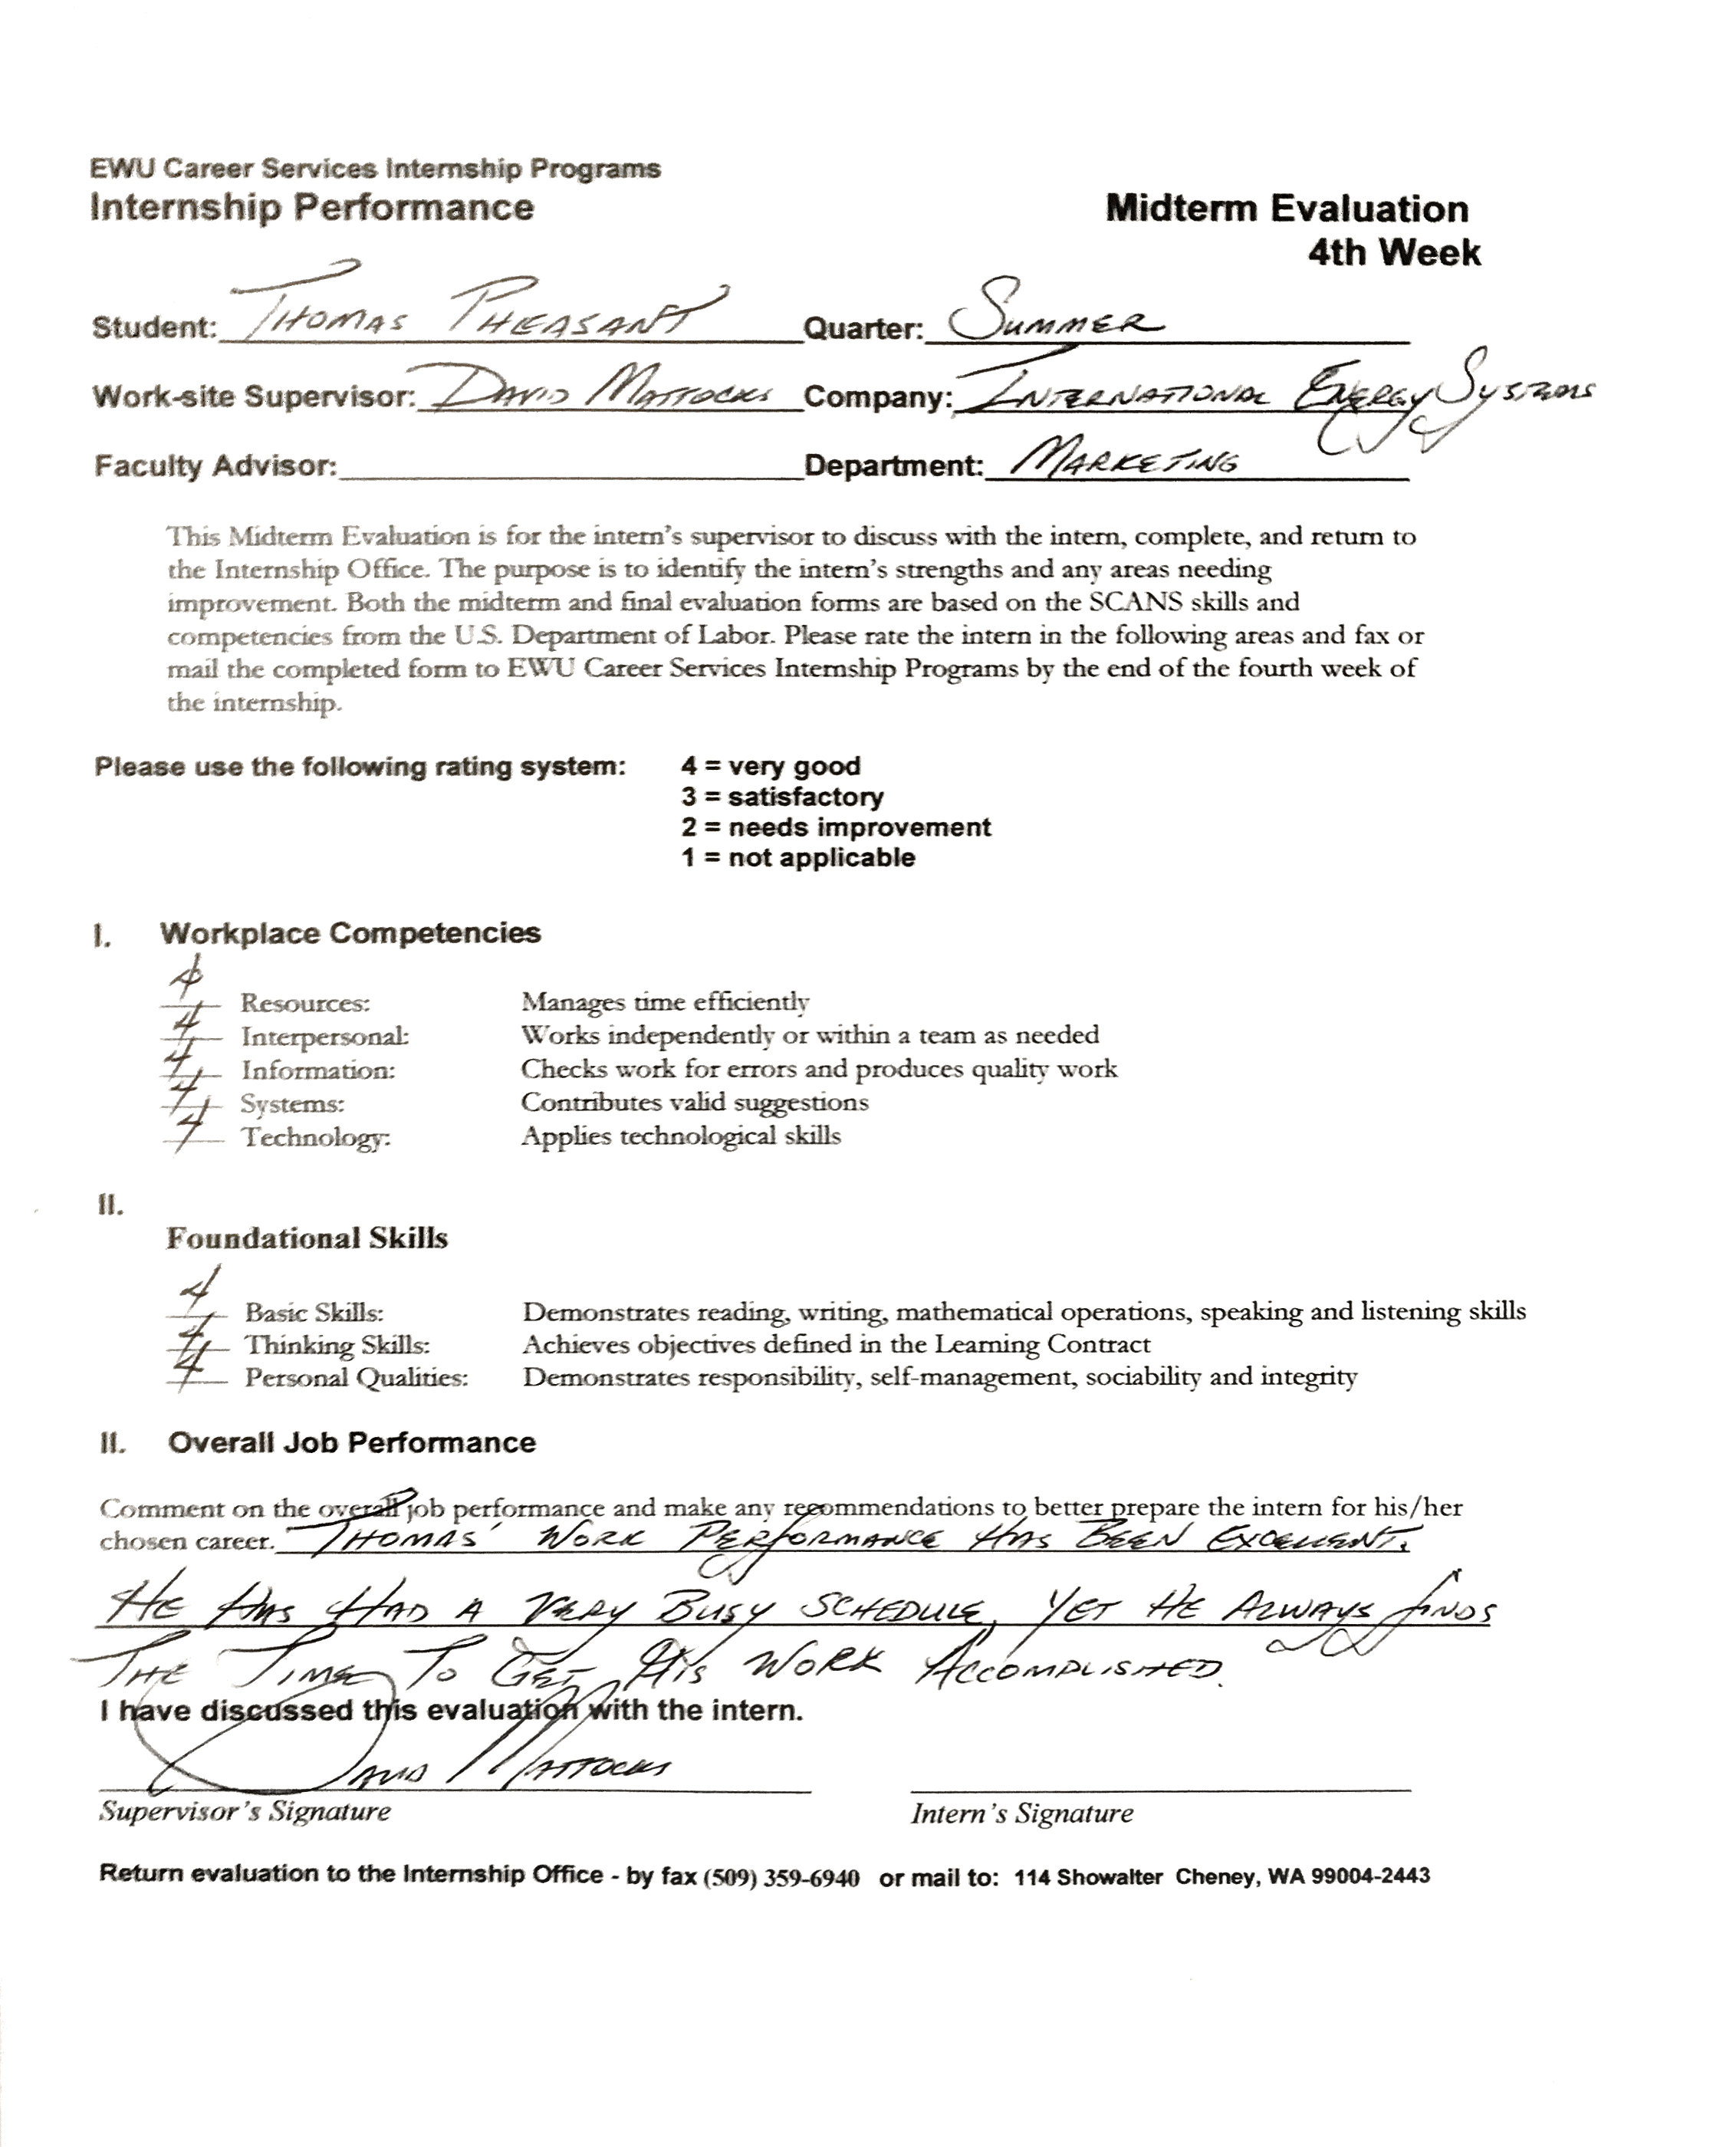 EWU Career Services Internship Programs
Internship Performance
Midterm Evaluation
4th Week
Student: THOMAS PHEASANT Quarter: SUMMER
Work-site Supervisor: DAVID MATTOCKS Company: INTERNATIONAL ENERGY SYSTEMS
Faculty Advisor: Department: MARKETING
This Midterm Evaluation is for the intern's supervisor to discuss with the intern, complete, and return to
the Internship Office. The purpose is to identify the intern's strengths and any areas needing
improvement. Both the midterm and final evaluation forms are based on the SCANS skills and
competencies from the U.S. Department of Labor. Please rate the intern in the following areas and fax or
mail the completed form to EWU Career Services Internship Programs by the end of the fourth week of
the internship.
Please use the following rating system: 4 = very good
3 = satisfactory
2 = needs improvement
1 = not applicable
I. Workplace Competencies
4 Resources: Manages time efficiently
4 Interpersonal: Works independently or within a team as needed
4 Information: Checks work for errors and produces quality work
4 Systems: Contributes valid suggestions
4 Technology: Applies technological skills
II.
Foundational Skills
4 Basic Skills: Demonstrates reading, writing, mathematical operations, speaking and listening skills
4 Thinking Skills: Achieves objectives defined in the Learning Contract
4 Personal Qualities: Demonstrates responsibility, self-management, sociability and integrity
II. Overall Job Performance
Comment on the overall job performance and make any recommendations to better prepare the intern for his/her
chosen career. THOMAS' WORK PERFORMANCE HAS BEEN EXCELLENT.
HE HAS HAD A VERY BUSY SCHEDULE, YET HE ALWAYS FINDS
THE TIME TO GET HIS WORK ACCOMPLISHED.
I have discussed this evaluation with the intern.
DAVID MATTOCKS
Supervisor's Signature Intern's Signature
Return evaluation to the Internship Office - by fax (509) 359-6940 or mail to: 114 Showalter Cheney, WA 99004-2443